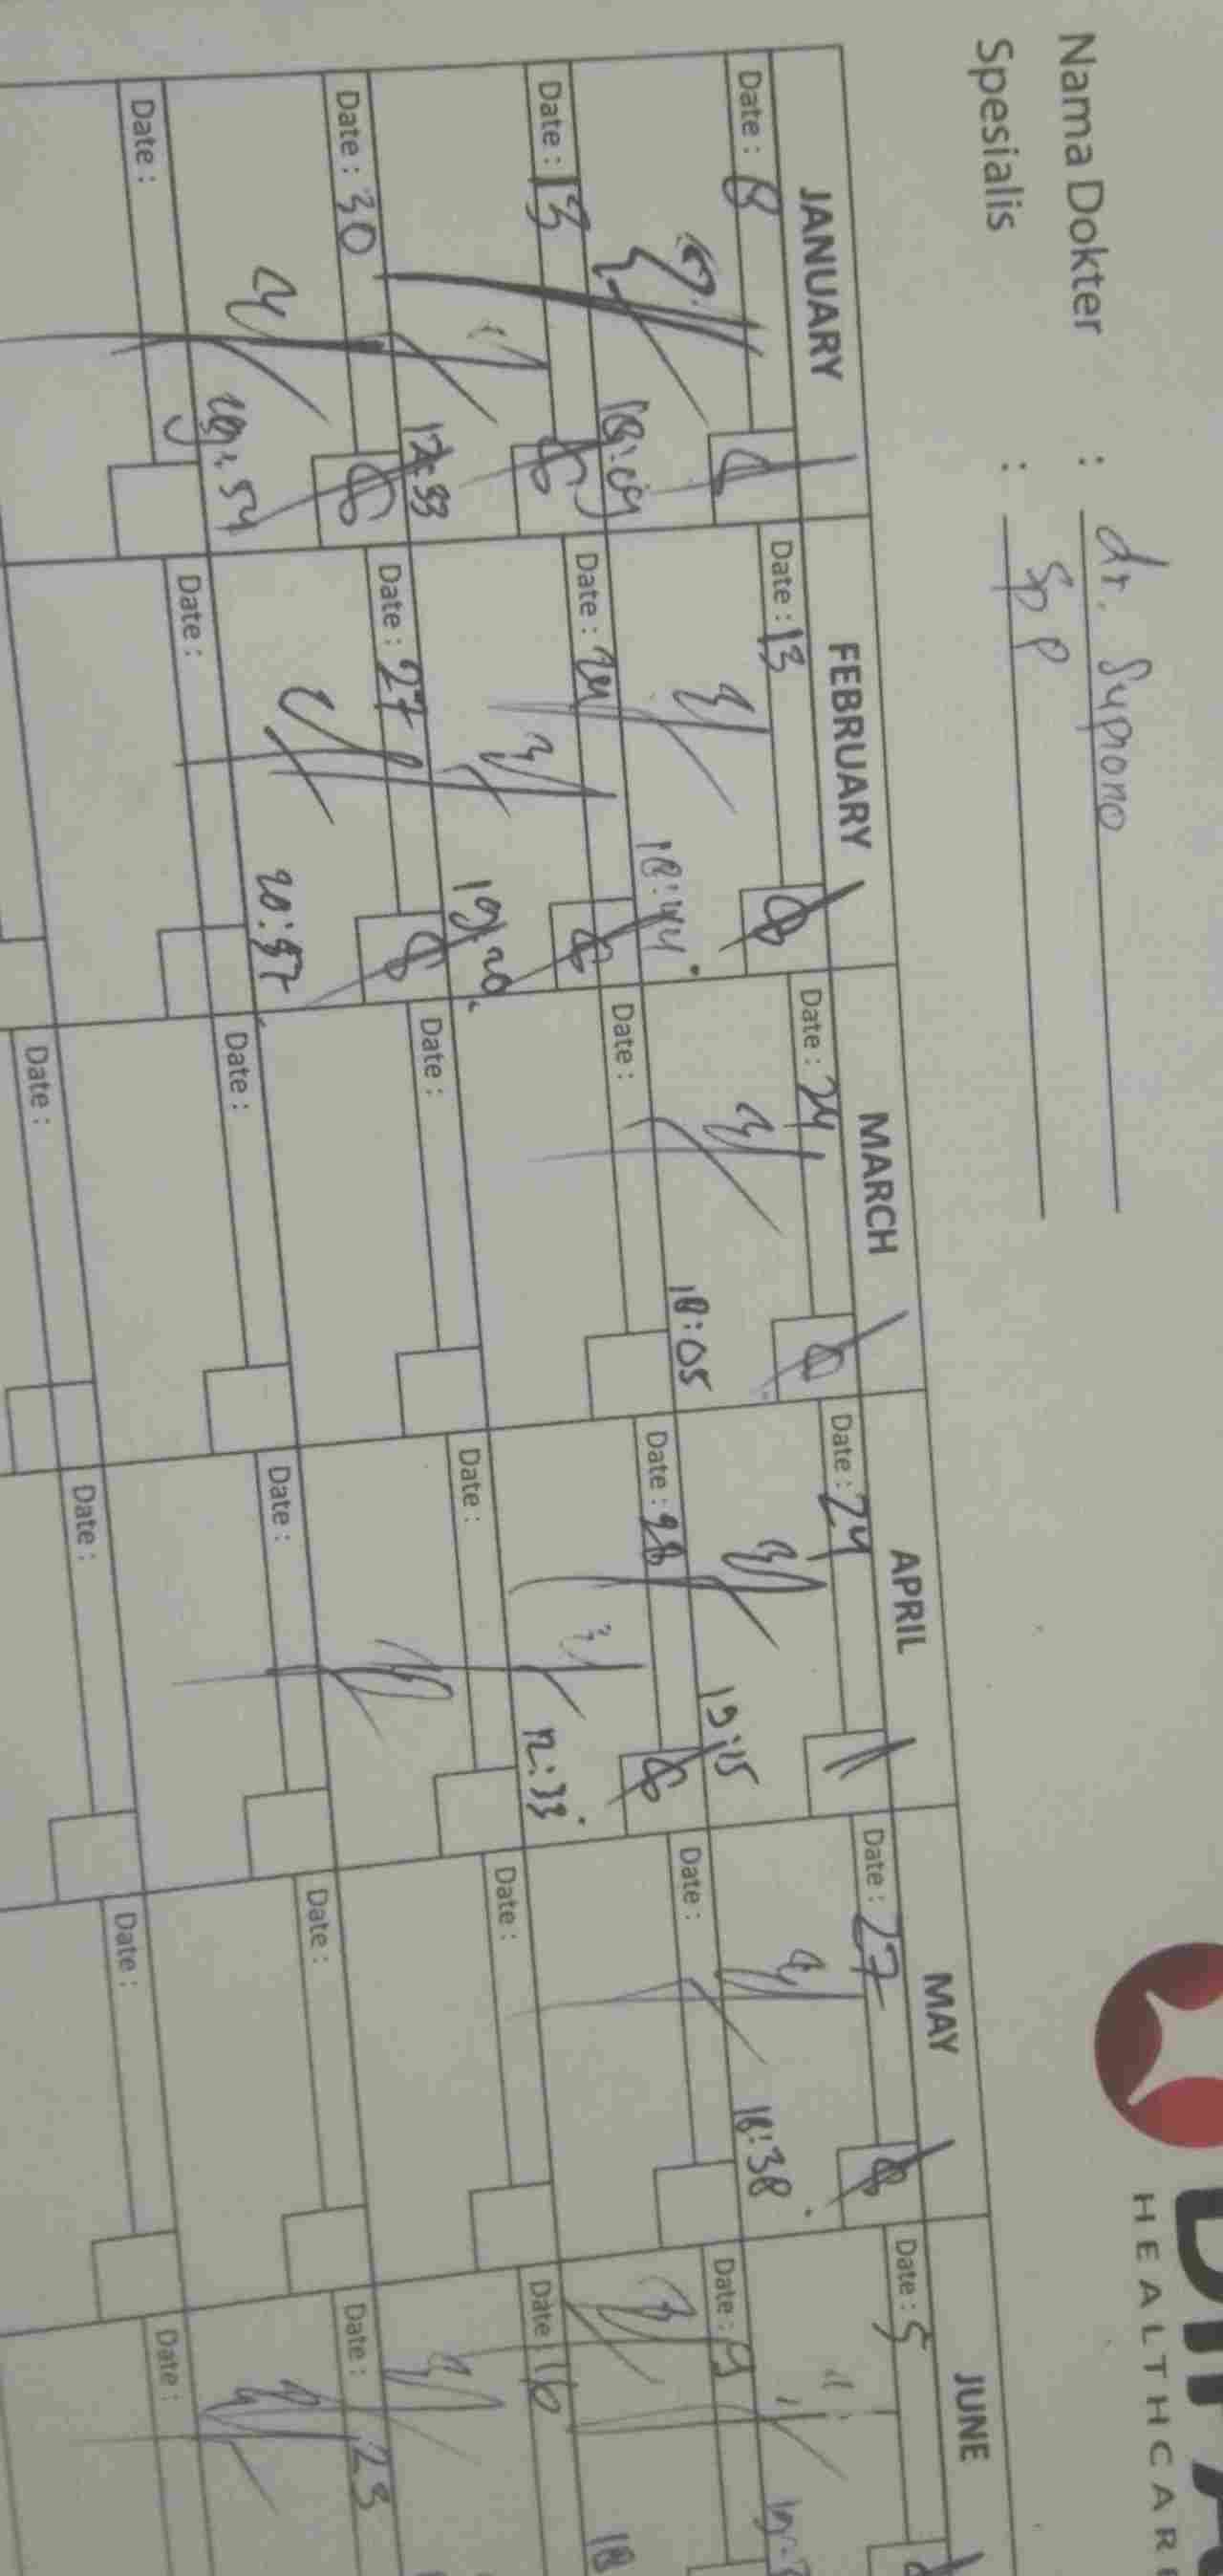 Nama Dokter : dr. Supriono
Spesialis : Sp P
HEALTHCAR
JANUARY FEBRUARY MARCH APRIL MAY JUNE
Date : 8 Date : 13 Date : 24 Date : 24 Date : 27 Date : 5
18:09 18:44 18:05 19:15 18:38
Date : 13 Date : 24 Date : Date : 28 Date : Date : 9
17:33 19:20 12:33 18
Date : 30 Date : 27 Date : Date : Date : Date : 16
20:37
Date : Date : Date : Date : Date : Date : 23
Date : Date : Date : Date :